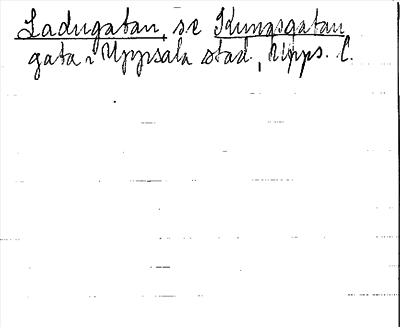 Ladugatan, se Kungsgatan
gata i Uppsala stad, Upps. l.